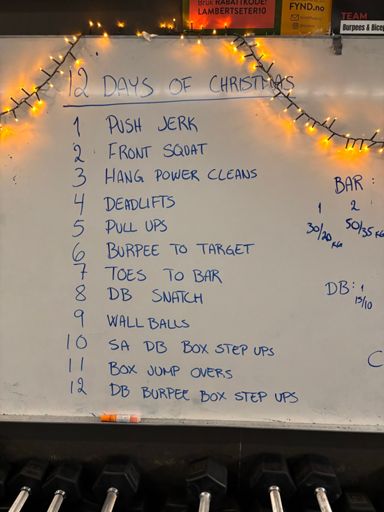 Bruk RABATTKODE!
LAMBERTSETER10
FYND.no
TEAM
Burpees & Bice
12 DAYS OF CHRISTMAS
1 PUSH JERK
2 FRONT SQUAT
3 HANG POWER CLEANS
4 DEADLIFTS
5 PULL UPS
6 BURPEE TO TARGET
7 TOES TO BAR
8 DB SNATCH
9 WALL BALLS
10 SA DB BOX STEP UPS
11 BOX JUMP OVERS
12 DB BURPEE BOX STEP UPS
BAR:
1 2
30/20 KG 50/35 KG
DB: 1
15/10
C